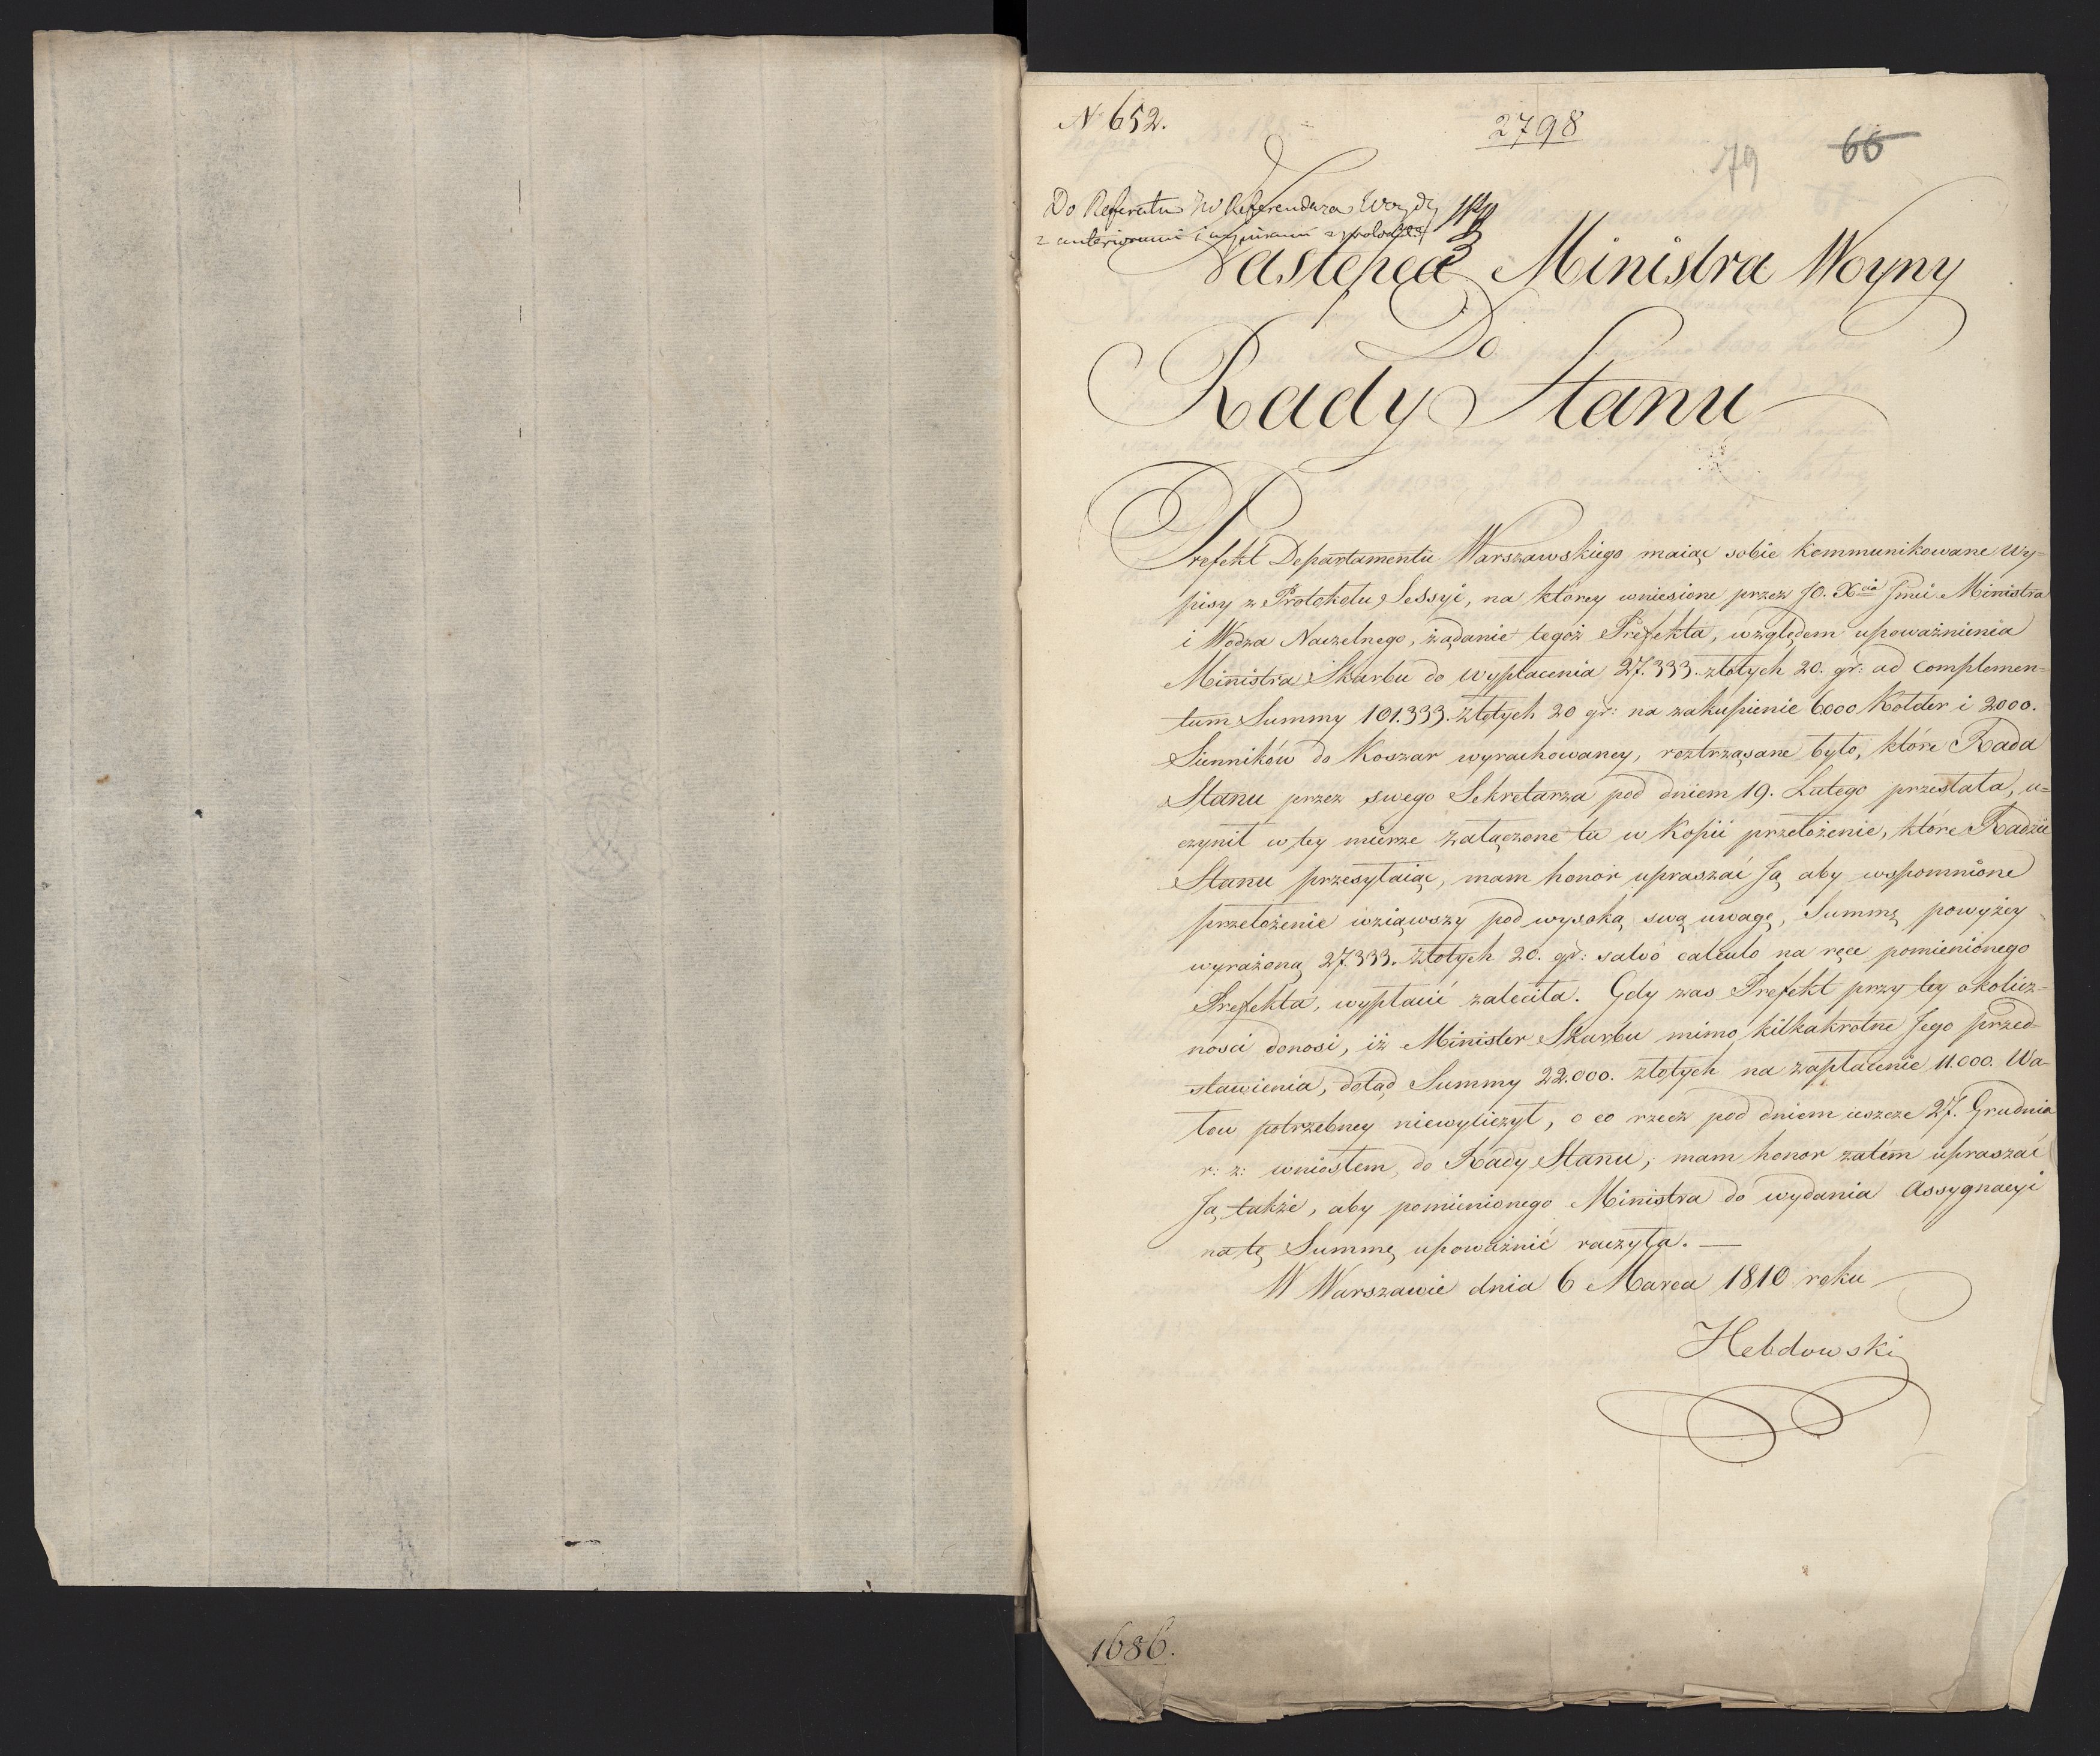 N 652.
2798
79
66
Do Referatu JW Referendarza
z anterioramii i
Zastępca Ministra Woyny
Do
Rady Stanu
Prefekt Departamentu Warszawskiego maiąc sobie kommunikowane Wy=
pisy z Protokołu Sessyi, na którey wniesione przez JO. Xcia Jmci Ministra
i Wodza Naczelnego, żądanie tegoż Prefekta, względem upoważnienia
Ministra Skarbu do wypłacenia 27.333. złotych 20. gr: ad complemen=
tum Summy 101.333. złotych 20 gr: na zakupienie 6000 Kołder i 2000.
Sienników do Koszar wyrachowaney, roztrząsane było, które Rada
Stanu przez swego Sekretarza pod dniem 19. Lutego przesłała, u=
czynił w tey mierze załączone tu w Kopii przełożenie, które Radzie
Stanu przesyłaiąc, mam honor upraszać Ją aby wspomnione
przełożenie wziąwszy pod wysoką swą uwagę, Summę powyżey
wyrażoną 27.333. złotych 20. gr: salvo calculo na ręce pomienionego
Prefekta, wypłacić zaleciła. Gdy zas Prefekt przy tey okolicz=
nosci donosi, iż Minister Skarbu mimo kilkakrotne Jego przed=
stawienia, dotąd Summy 22.000. złotych na zapłacenie 11.000. Wa=
łow potrzebney niewyliczył, o co rzecz pod dniem ieszcze 27. Grudnia
r: z: wniosłem do Rady Stanu; mam honor zatém upraszać
Ją także, aby pomienionego Ministra do wydania Assygnacyi
na tę Summę upoważnić raczyła. —
W Warszawie dnia 6 Marca 1810 roku
Hebdowski
1686.